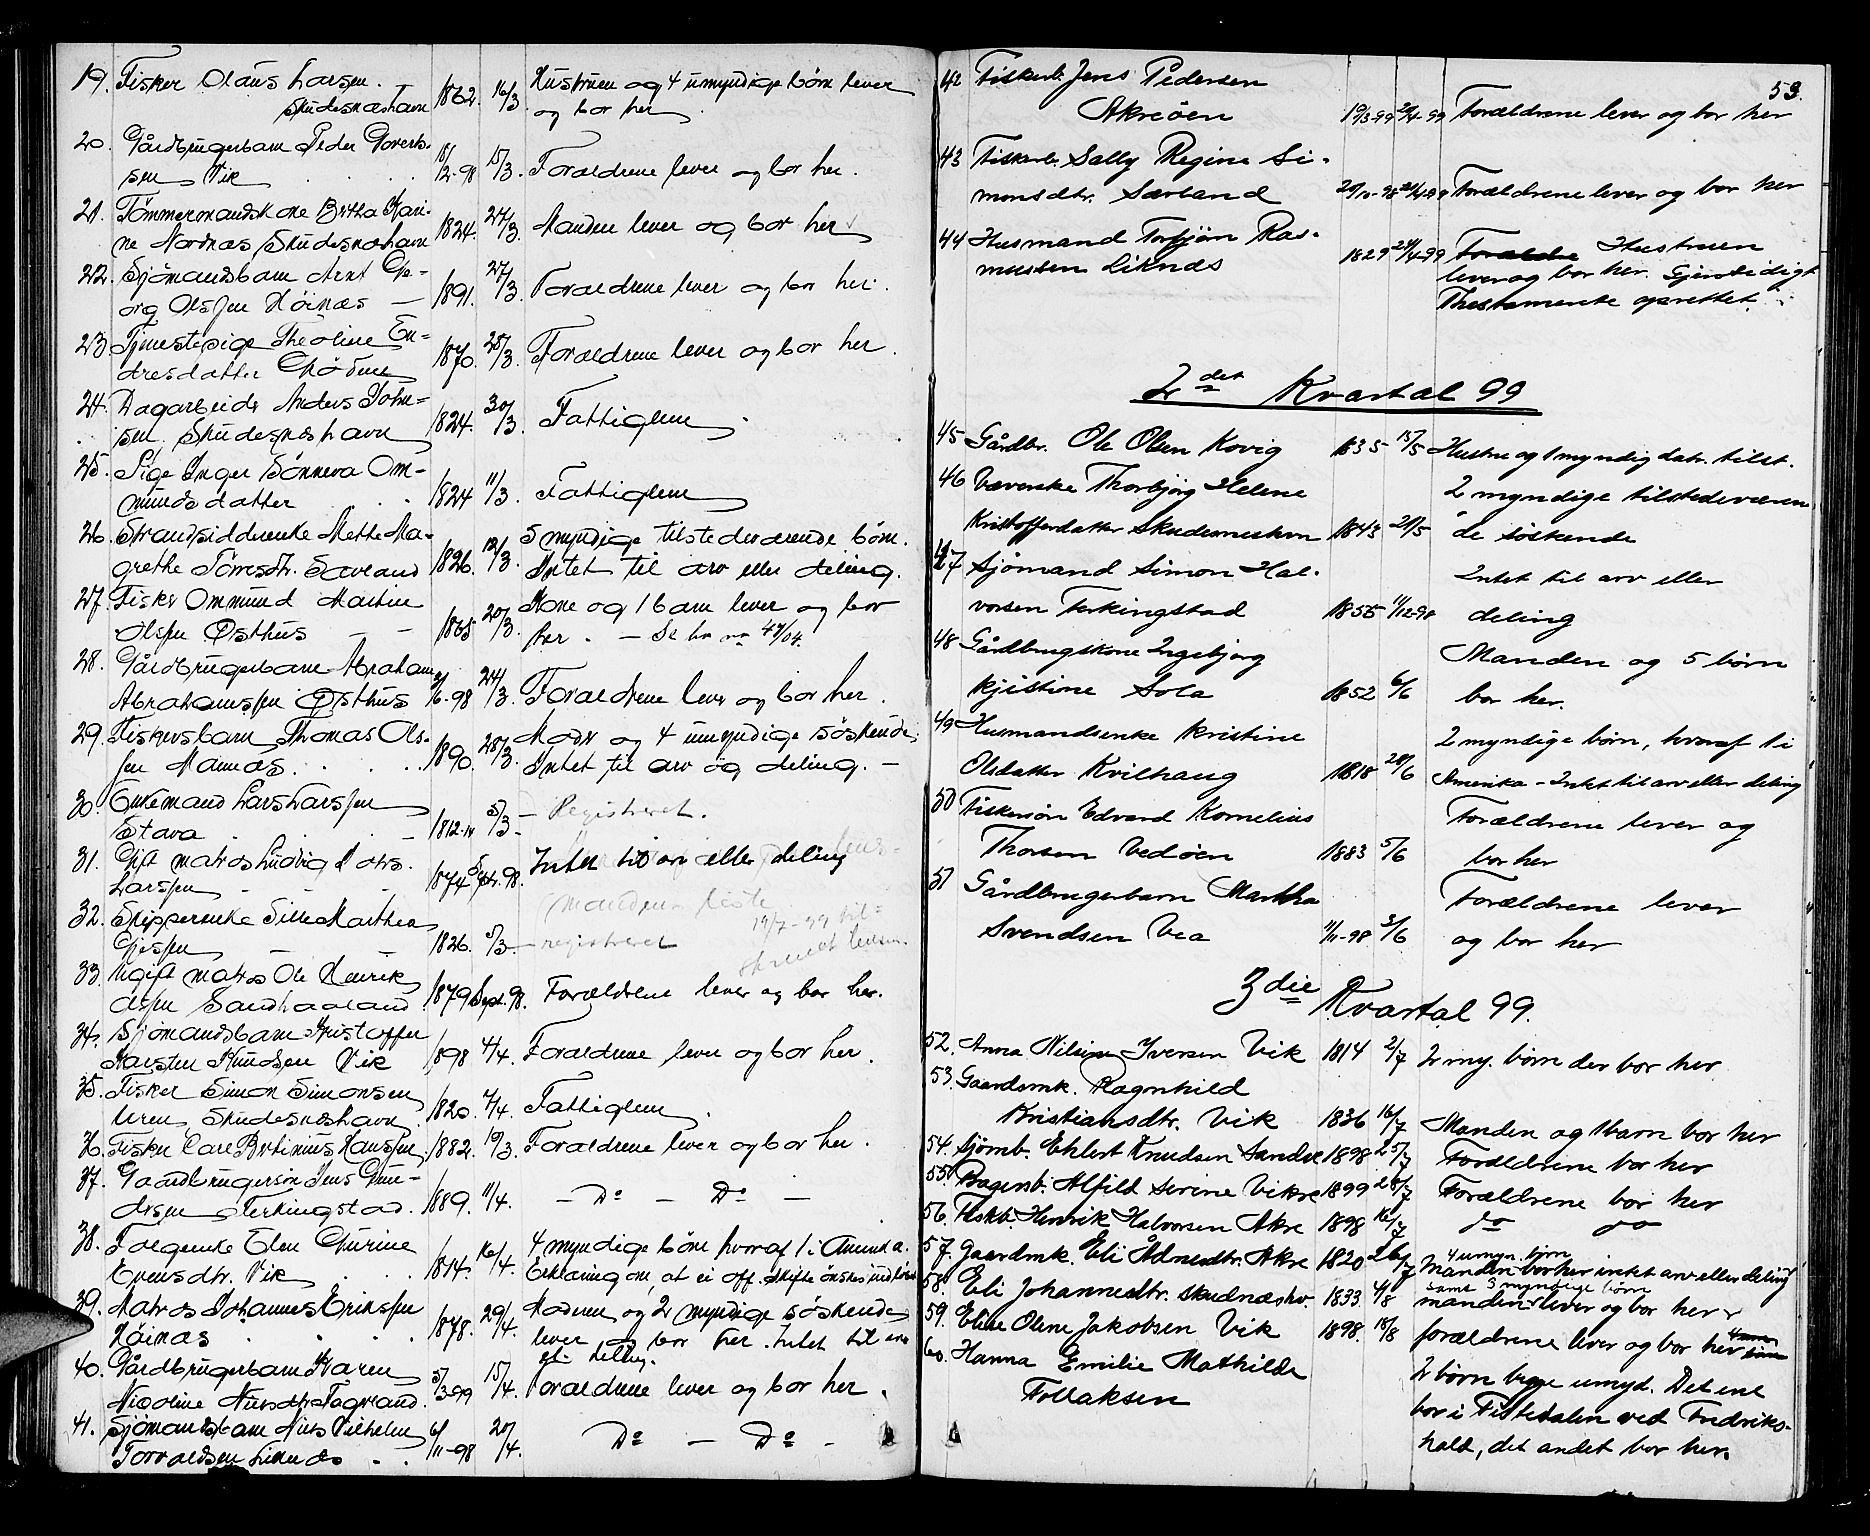 19. Fisker Olaus Larsen
Skudesneshavn 1862. 16/3 Hustruen og 4 umyndige börn lever
og bor her
20. Gårdbrugerbarn Peder Goverts-
sen Vik 18/2-98 15/3. Forældrene lever og bor her.
21. Tömmermandskone Bertha Kari-
ne Nordnæs Skudesneshavn 1824. 27/3. Manden lever og bor her
22. Sjömandsbarn Arnt Ge-
org Olssen Höinæs 1891. 27/3. Forældrene lever og bor her.
23. Tjenestepige Theoline En-
dresdatter 1870. 28/3. Forældrene lever og bor her.
24. Dagarbeider Anders John-
sen. Skudesneshavn 1824. 30/3. Fattiglem
25. Pige Inger Sönneva Om-
mundsdatter 1824 11/3. Fattiglem
26. Strandsidderenke Mette Ma-
grethe Törresdtr. Sævland 1826. 12/3. 5 myndige tilstedeværende börn.
Intet til arv eller deling.
27. Fisker Ommund Martin
Olsen Østhus 1865. 20/3. Kone og 1 barn lever og bor
her. – Se lnr 47/04.
28. Gårdbrugerbarn Abraham
Abrahamssen Østhus /6-98 24/3. Forældrene lever og bor her.
29. Fiskersbarn Thomas Ols-
sen Mannes 1890. 28/3. Moder og 4 umyndige söskende
Intet til arv og deling. –
30. Enkemand Lars Larssen
Stava 1812. 5/3 – Registreret.
31. Gift matros Ludvig
Larssen 1874 Sptr. 98. Intet til arv eller deling
Mandens
32. Skipperenke Sille Marthea
Gjessen 1826. 5/3 – registreret 19/7-99
33. Ugift matros Ole Henrik
Olsen Sandhaaland 1879 Sept. 98. Forældrene lever og bor her.
34. Sjömandsbarn Kristoffer
Karsten Knudsen Vik 1898 4/4. Forældrene lever og bor her.
35. Fisker Simon Simonsen
Uren, Skudesneshavn 1820. 4/4. Fattiglem
36. Fisker Carl Bertinius Hanssen 1882. 19/3. Forældrene lever og bor her.
37. Gaardbrugersön Jens
Ferkingstad 1889. 11/4. – Do – Do –
38. Folgeenke Elen Gurine
Evensdtr. Vik 1814. 16/4. 4 myndige börn hvoraf 1 i Amerika.
Erklæring om, at ei off. skifte önskes
39. Matros Johannes Erikssen
Höinæs 1878. 29/4. Moderen og 2 myndige söskende
lever og bor her. Intet til arv
el. deling.
40. Gårdbrugerbarn Karen
Nicoline 5/3-99 15/4. Forældrene lever og bor her.
41. Sjömandsbarn Nils Vilhelm
Torvaldsen Liknes 6/11-98 20/4. Do – Do –
53.
42 Fiskerb. Jens Pedersen
Akreöen 19/3-99 Forældrene lever og bor her
43 Fiskerb. Sally Regine Si-
monsdtr. Særland Forældrene lever og bor her
44 Husmand Torbjörn Ras-
mussen Liknes 1829 24/4-99 Forældre Hustruen
lever og bor her. Gjensidigt
Thestamente oprettet.
2det Kvartal 99
45 Gårdbr. Ole Olsen Kovig 1835 15/5 Hustru og 1 myndig datr. tilst.
46 Væverske Thorbjörg Helene 2 myndige tilstedeværen
Kristofferdatter Skudesneshavn 1843 21/5 de söskende
47 Sjömand Simon Hal- Intet til arv eller
vorsen Ferkingstad 1855 11/12-98 deling
48 Gårdbrugskone Ingebjorg Manden og 5 börn
Kjistine Sola 1852 6/6 bor her.
49 Husmandsenke Kristine 2 myndige börn, hvoraf 1 i
Olsdatter Kvilhaug 1818 28/6 Amerika – Intet til arv eller deling
50 Fiskersön Edvard Kornelius Forældrene lever og
Thorsen Vedöen 1883 5/6 bor her
51 Gårdbrugerbarn Martha Forældrene lever
Svendsen Vea 11/11-98 3/6 og bor her
3die Kvartal 99.
52. Anna Nilsine Iversen Vik 1814 2/7 2 my. börn der bor her
53. Gaardsmk. Ragnhild
Kristiansdtr. Vik 1836 16/7 Manden og 1 barn bor her
54. Sjömb. Ehlert Knudsen Sandve 1898 25/7 Forældrene bor her
55. Bagerb. Alfild Serine Vikre 1899 28/7 Forældrene bor her
56. Fiskb. Henrik Halvorsen Akre 1898 16/7 do do
57. Gaardmk. Eli Ådnesdtr. Akre 1820 26/7 4 umyn. börn
Manden bor her intet arv eller deling
58. Eli Johannesdtr. Skudnæshv. 1833 4/8 samt 3 myndige börn
manden lever og bor her
59. Eline Olene Jakobsen Vik 1898. 18/8 forældrene lever og bor her
60. Hanna Emilie Mathilde
Follaksen 2 börn begge umynd. Det ene
bor i Tistedalen ved Fredriks-
hald, det andet bor her.